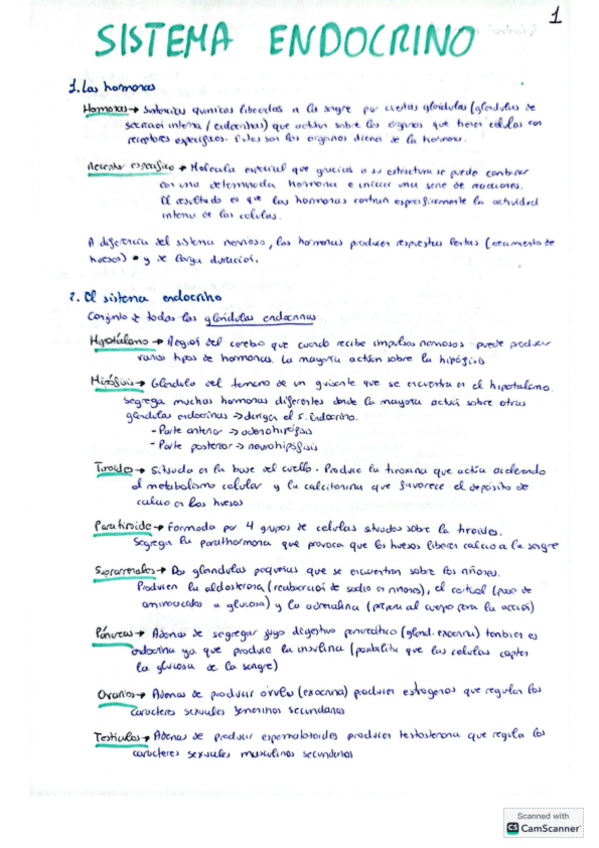 1
SISTEMA ENDOCRINO
1. Las hormonas
Hormonas → Sustancias quimicas liberadas a la sangre por ciertas glándulas (glándulas de
secreción interna / endocrinas) que actúan sobre los órganos que tienen células con
receptores específicos. Estos son los órganos diana de la hormona.
Receptor específico → Molécula especial que gracias a su estructura se puede combinar
con una determinada hormona e iniciar una serie de reacciones.
El resultado es que las hormonas controlan específicamente la actividad
interna de las celulas.
A diferencia del sistema nervioso, las hormonas producen respuestas lentas (crecimiento de
huesos) y de larga duración.
2. El sistema endocrino
Conjunto de todas las glándulas endocrinas
Hipotálamo → Región del cerebro que cuando recibe impulsos nerviosos puede producir
varios tipos de hormonas. La mayoría actúan sobre la hipófisis
Hipófisis → Glándula del tamaño de un guisante que se encuentra en el hipotálamo.
Segrega muchas hormonas diferentes donde la mayoría actúa sobre otras
glándulas endocrinas → dirigen el s. Endocrino.
- Parte anterior → adenohipófisis
- Parte posterior → neurohipófisis
Tiroides → Situada en la base del cuello. Produce la tiroxina que actúa acelerando
el metabolismo celular y la calcitonina que favorece el depósito de
calcio en los huesos
Paratiroide → Formada por 4 grupos de celulas situados sobre la tiroides.
Segrega la parathormona que provoca que los huesos liberen calcio a la sangre
Suprarrenales → Dos glándulas pequeñas que se encuentran sobre los riñones.
Producen la aldosterona (reabsorción de sodio en riñones), el cortisol (paso de
aminoacidos a glucosa) y la adrenalina (prepara al cuerpo para la acción)
Páncreas → Además de segregar jugo digestivo pancreático (gland. exocrina) también es
endocrina ya que produce la insulina (posibilita que las celulas capten
la glucosa de la sangre)
Ovarios → Ademas de producir óvulos (exocrina) producen estrogenos que regulan los
caracteres sexuales femeninos secundarios
Testículos → Ademas de producir espermatozoides producen testosterona que regula los
caracteres sexuales masculinos secundarios
Scanned with
CS CamScanner